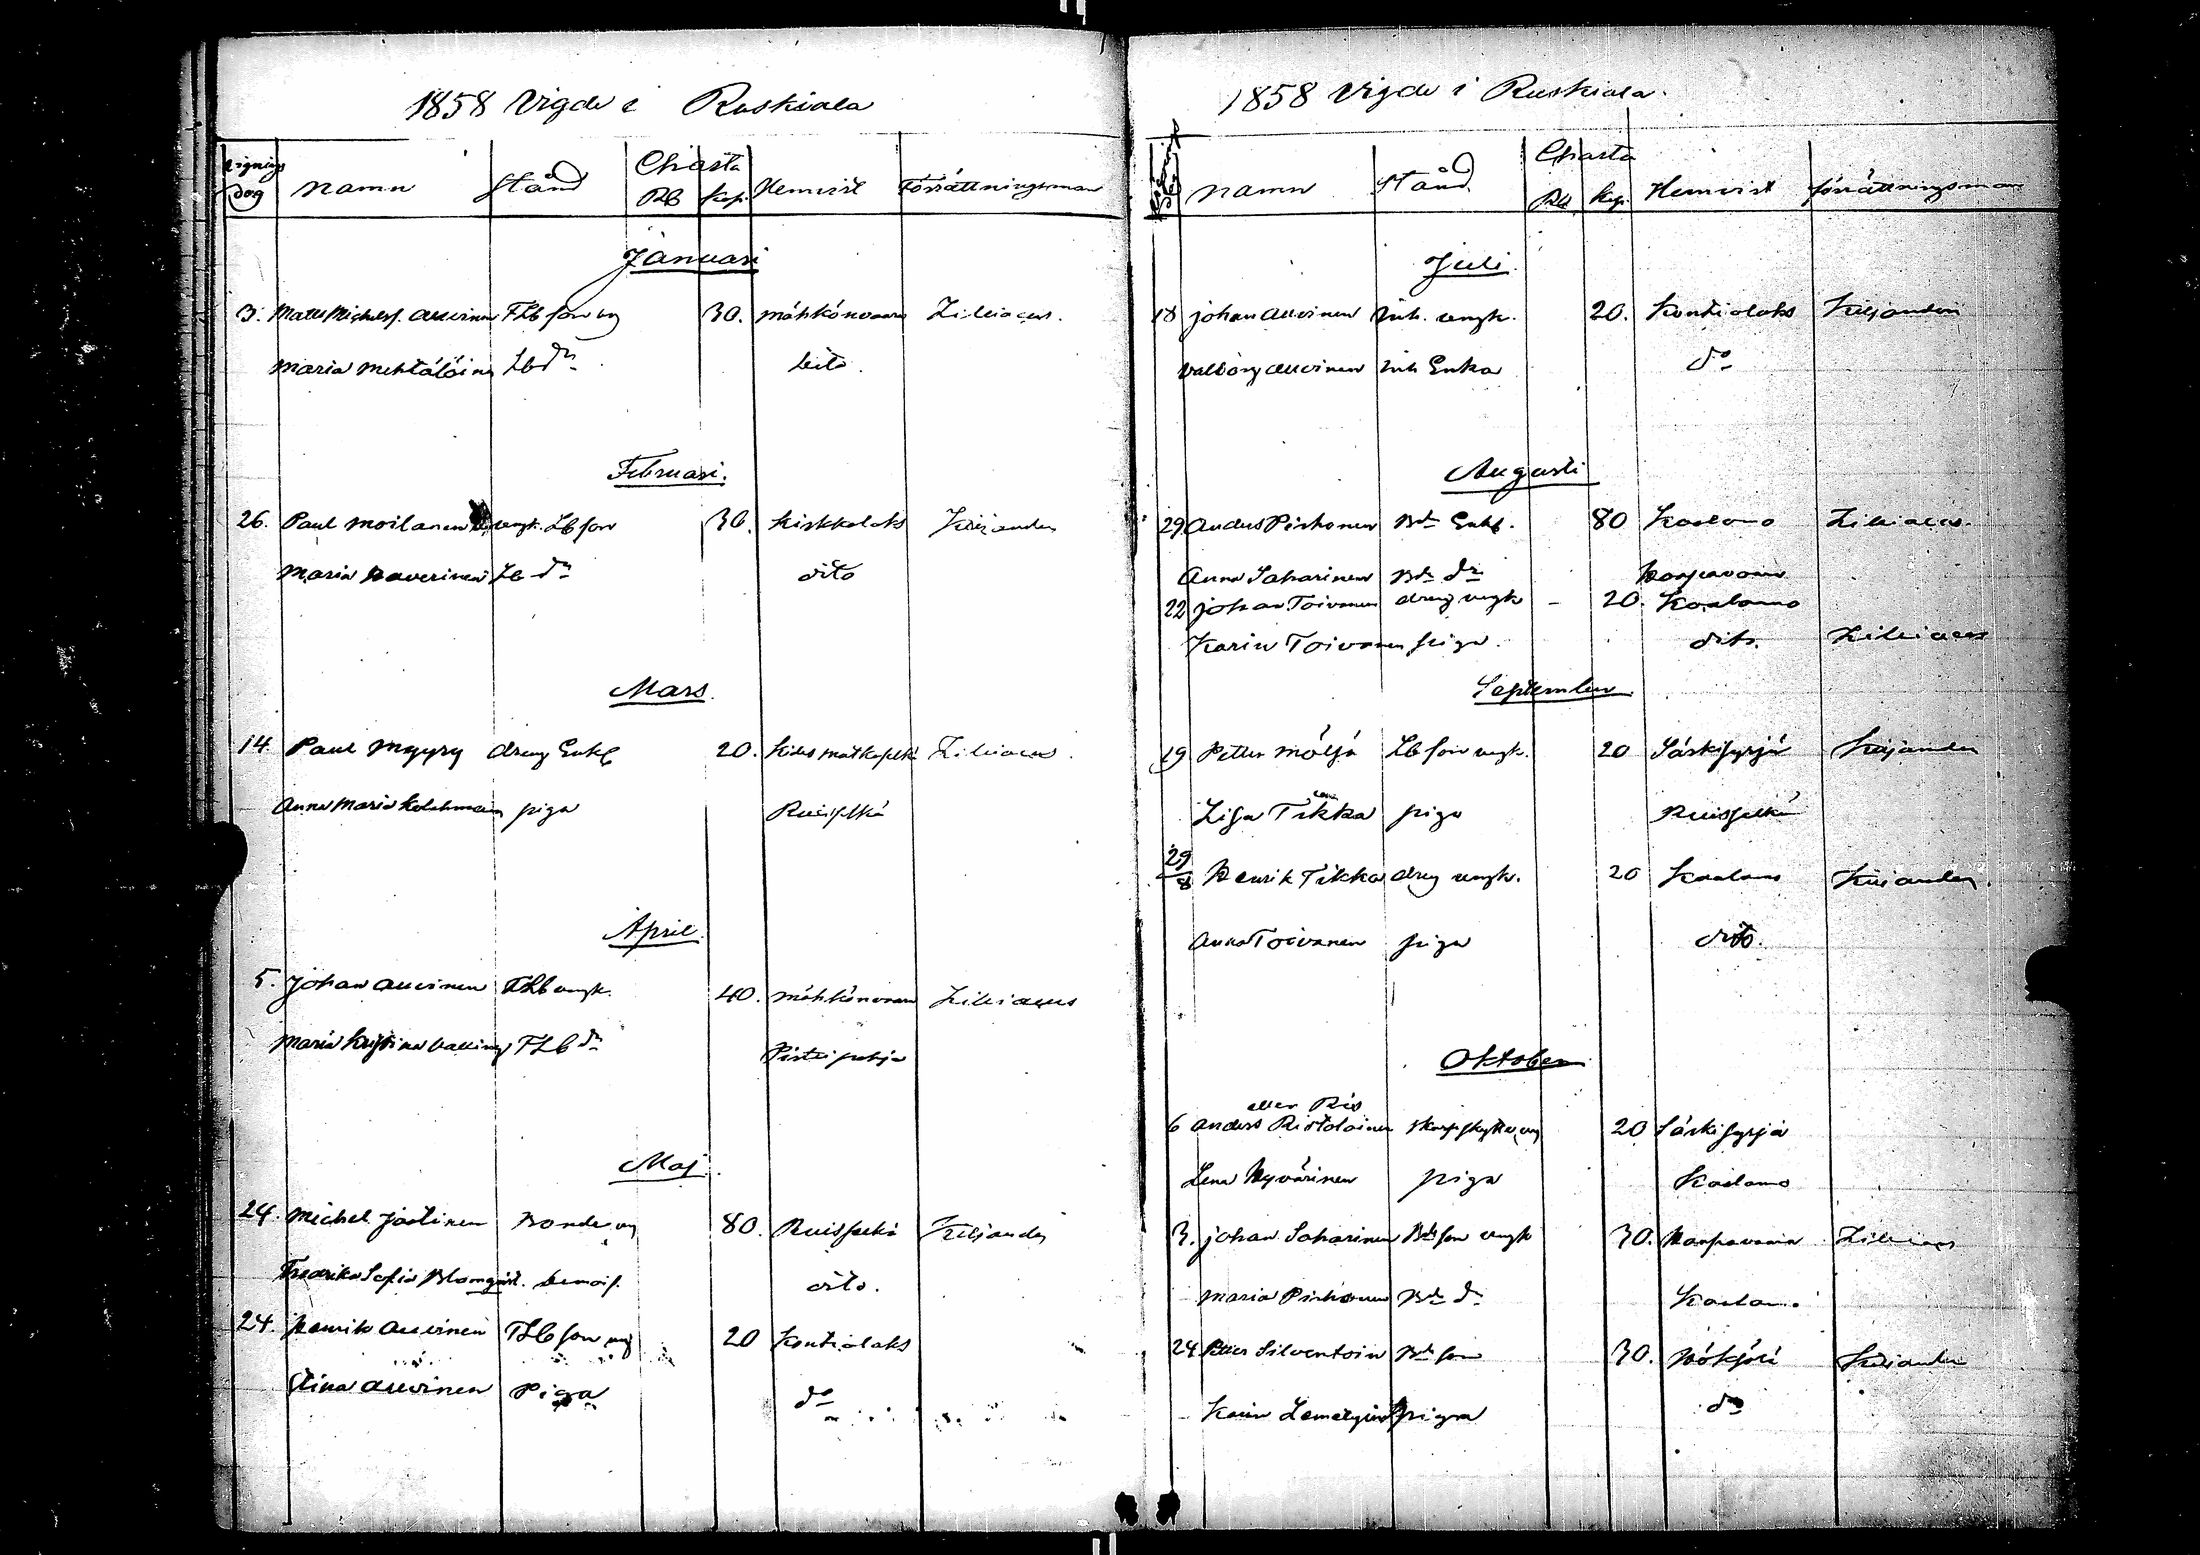 1858 Vigde i Ruskiala
Vignings dag Namn Stånd Charta Rb Kop. Hemvist Förrättningsman
Januari
3. Matts Michelsf. Auvinen FLb son 30. Möhkönvaara Liliacus.
Maria Lb dr dito.
Februari.
26. Paul Moilanen ungk. Lb son 30. Kirkkolaks Kiljander
Maria Lb dr dito
Mars.
14 Paul Myyry dräng Enkl 20. Kides Matkaselkä Liliacus.
Anna Maria piga Ruisselkä
April.
5. Johan Auvinen FLb ungk. 40. Möhkönvaara Liliacus
Maria Kristina FLb dr
Maj.
24. Michel Jäntinen Bonde 80. Ruisselkä Kiljander
Fredrika Sofia Blomqvist. demois. dito.
24. Henrik Auvinen FLb son 20 Kontiolaks
Stina Auvinen Piga do
1858 Vigde i Ruskiala.
Namn Stånd Charta Rb. Kop. Hemvist Förrättningsman
Juli.
18 Johan Auvinen Inh. ungk. 20. Kontiolaks Kiljander
Valborg Auvinen Inh Enka do
Augusti
29. Anders Pirhonen Bde Enkl. 80 Kaalamo Liliacus.
Anna Saharinen Bde dr Haapavaara
22 Johan Toivanen dräng ungk – 20. Kaalamo
Karin Toivanen piga. dito. Liliacus
September
19 Petter Möljä Lb son ungk. 20 Särkisyrjä Kiljander
Lisa Tikka piga Ruisselkä
29/8 Henrik Tikka dräng ungk. 20 Kaalamo Kiljander.
Anna Toivanen piga dito.
Oktober
eller Ris
6 Anders Ristolainen skarpskytte 20 Särkisyrjä
Lena Hyvärinen piga Kaalamo
3. Johan Saharinen Bde son ungk 30. Haapavaara Liliacus
Maria Pirhonen Bde dr Kaalamo
24 Petter Silventoin Bde son 30. Kiljander
Karin piga do